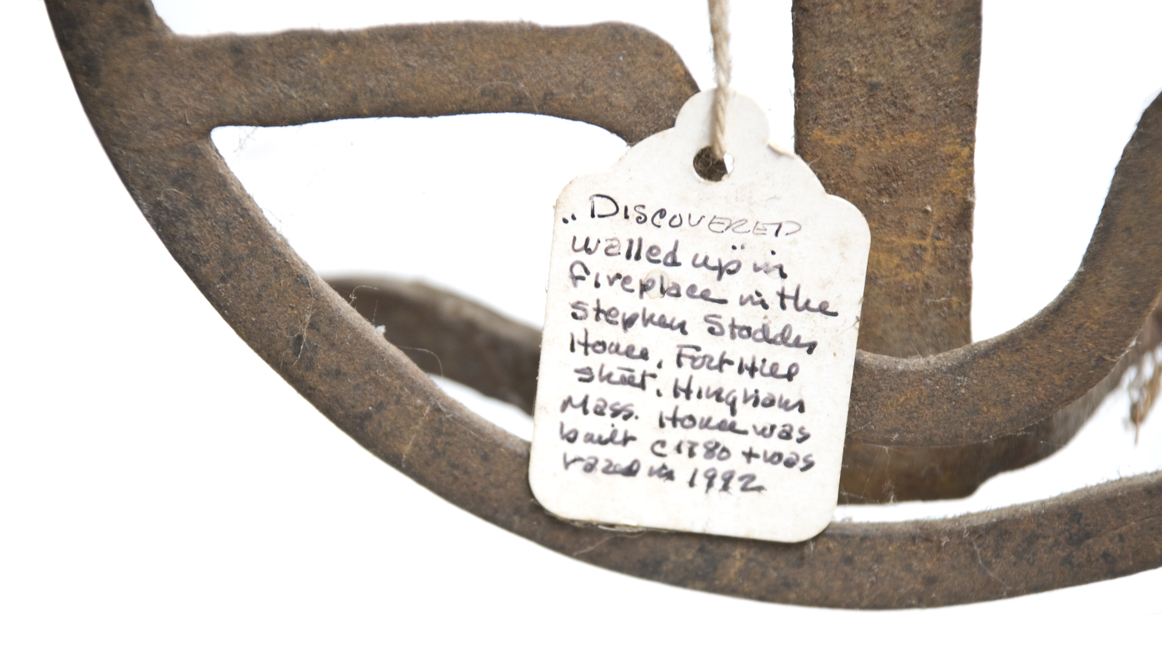 "DISCOVERED
walled up" in
fireplace in the
Stephen Stodder
House, Fort Hill
Street, Hingham
Mass. House was
built c1780 + was
razed in 1992